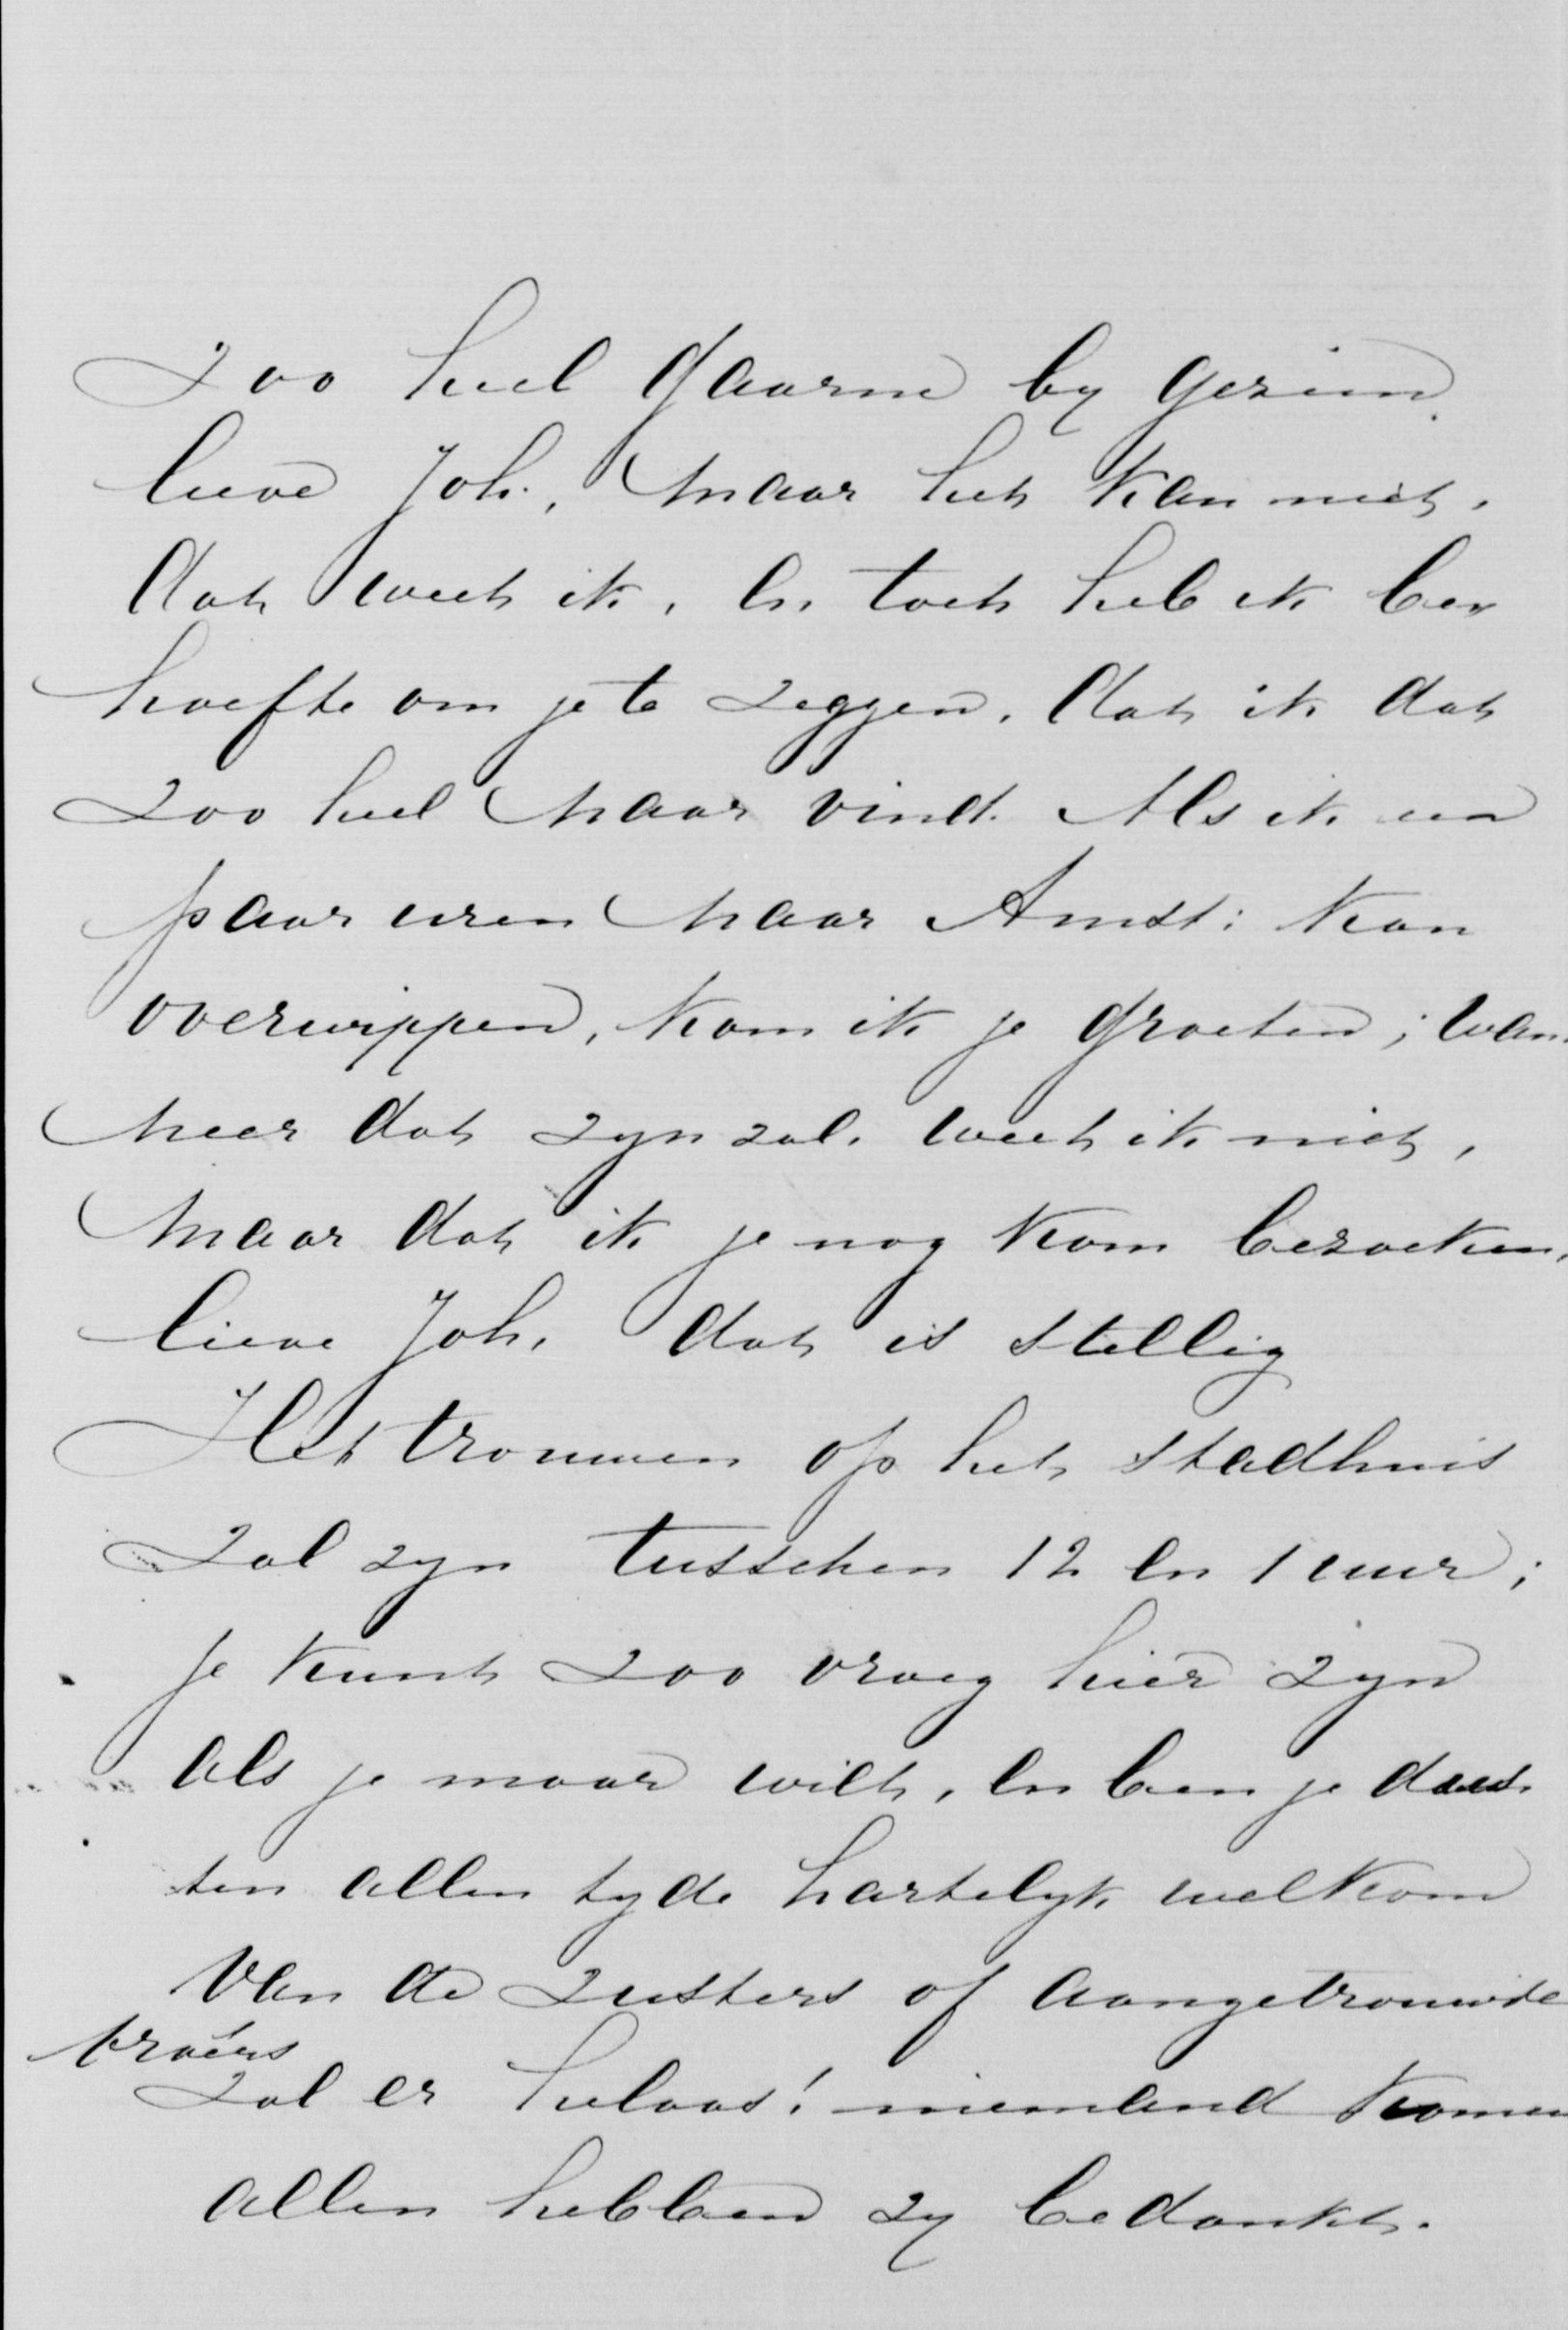 zoo heel gaarne by gezien
lieve Joh., maar het kan niet,
dat weet ik, en toch heb ik be„
hoefte om je te zeggen, dat ik dat
zoo heel naar vind. Als ik een
paar uren naar Amst: kan
overwippen, kom ik je groeten; wan„
neer dat zyn zal, weet ik niet,
maar dat ik je nog kom bezoeken,
lieve Joh, dat is stellig
Het trouwen op het stadhuis
zal zyn tusschen 12 en 1 uur;
je kunt zoo vroeg hier zyn
als je maar wilt, en ben je
ten allen tyde hartelyk welkom
Van de zusters of aangetrouwde
broêrs
zal er helaas! niemand komen
allen hebben zy bedankt.